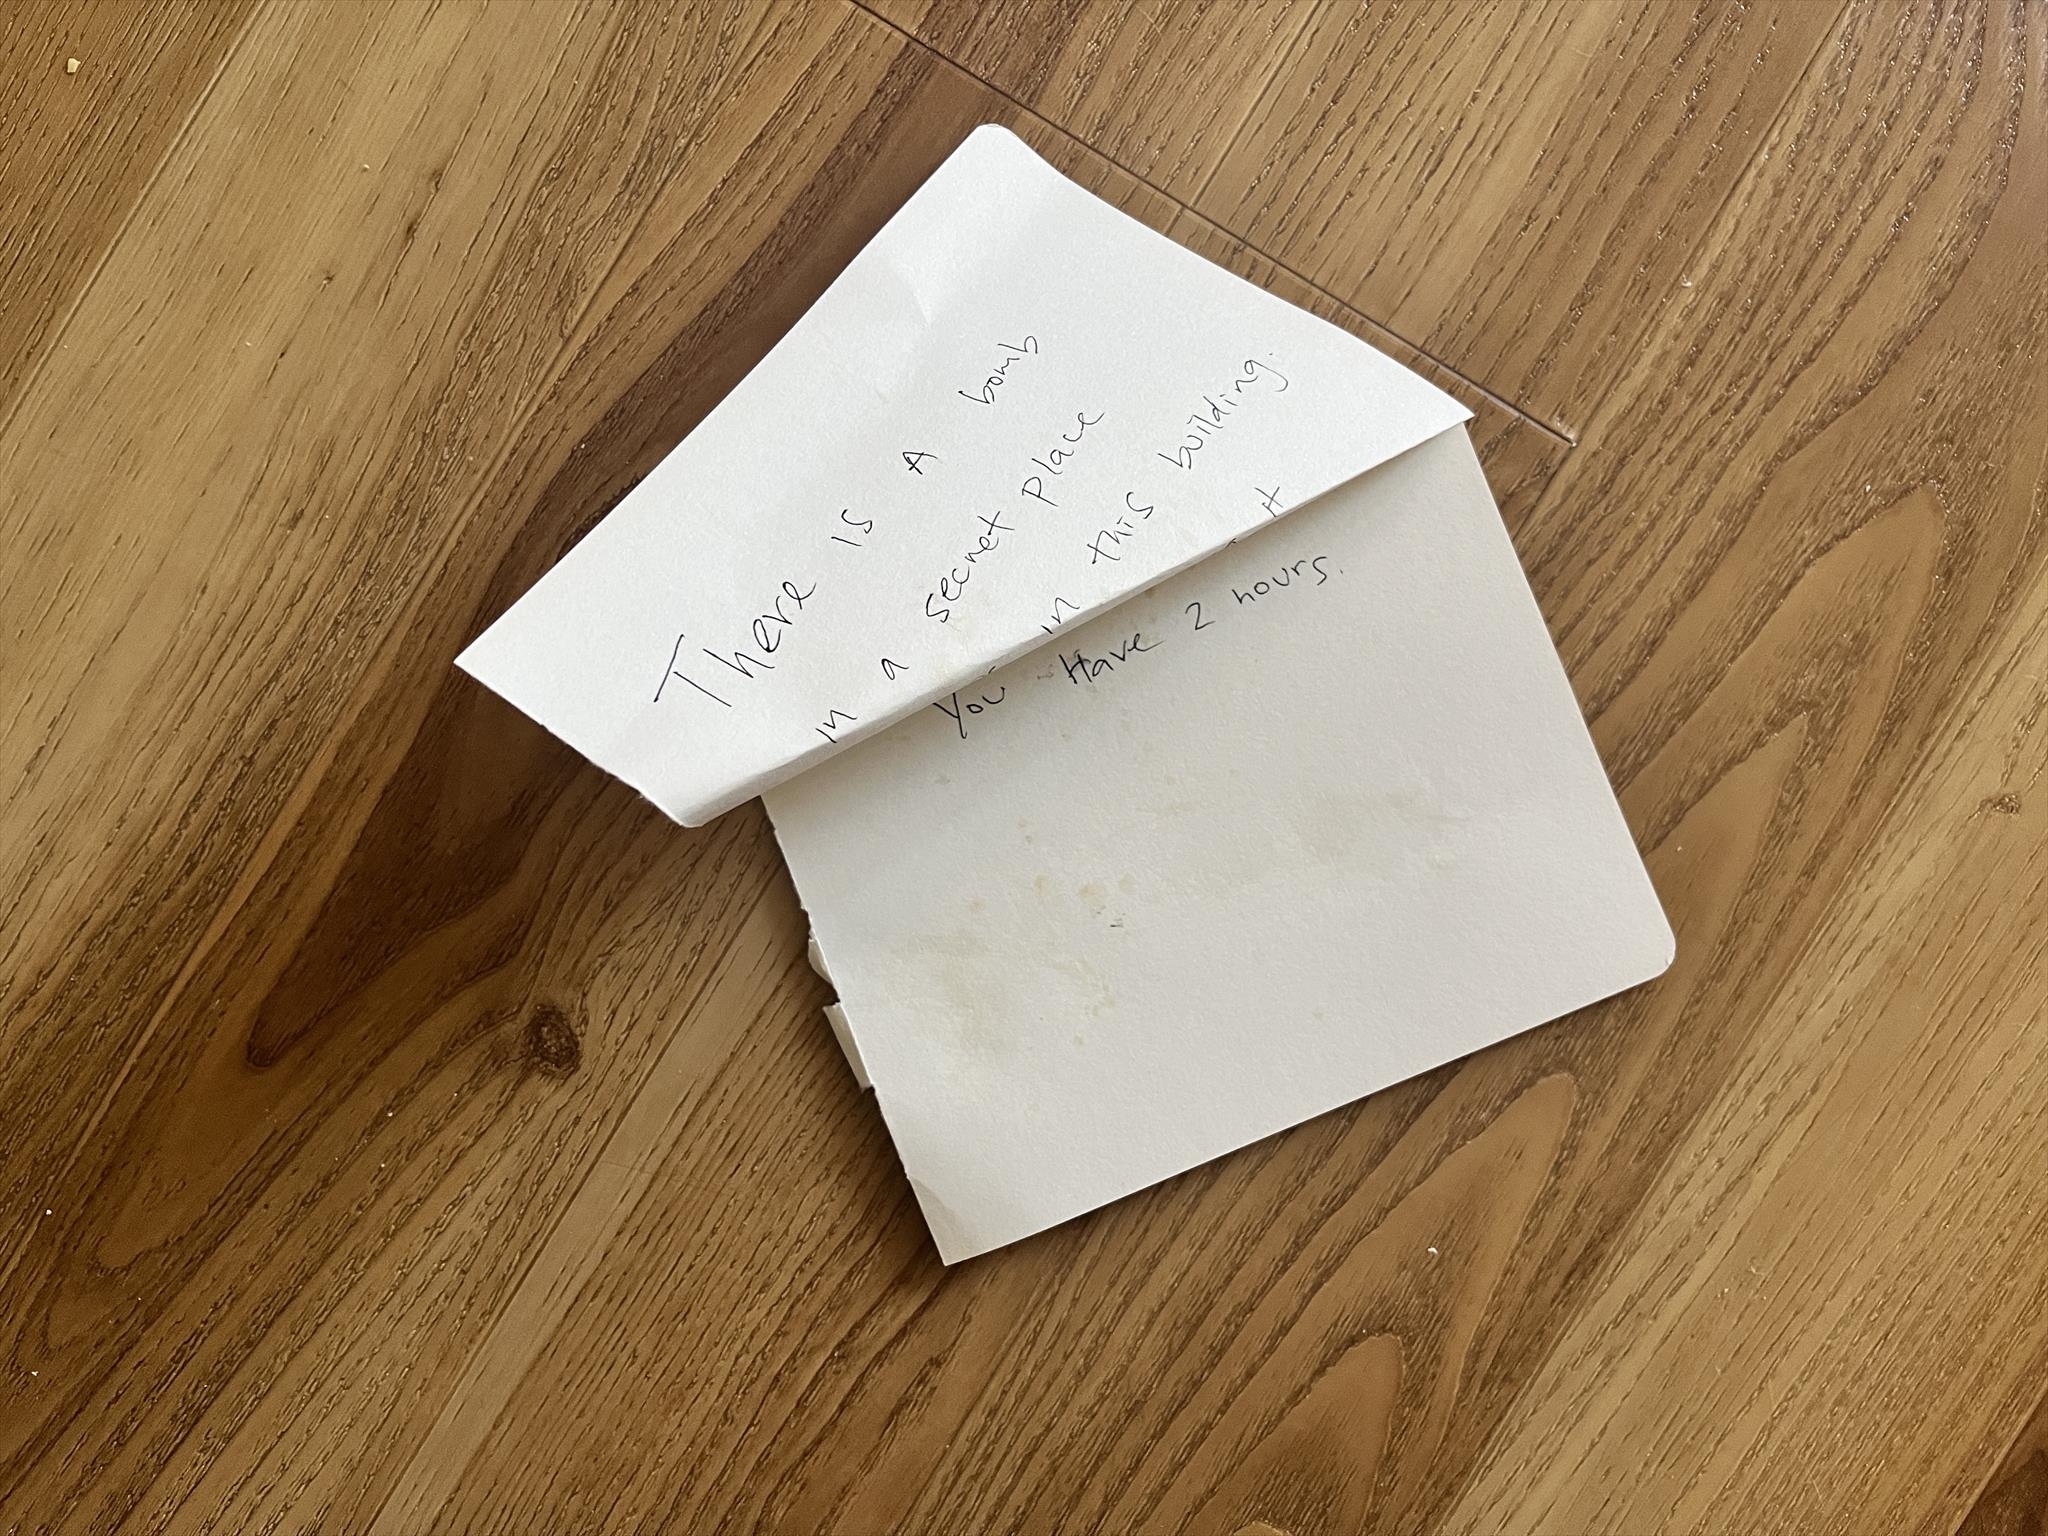 There is A bomb
in a secret place
in this building.
You Have 2 hours.